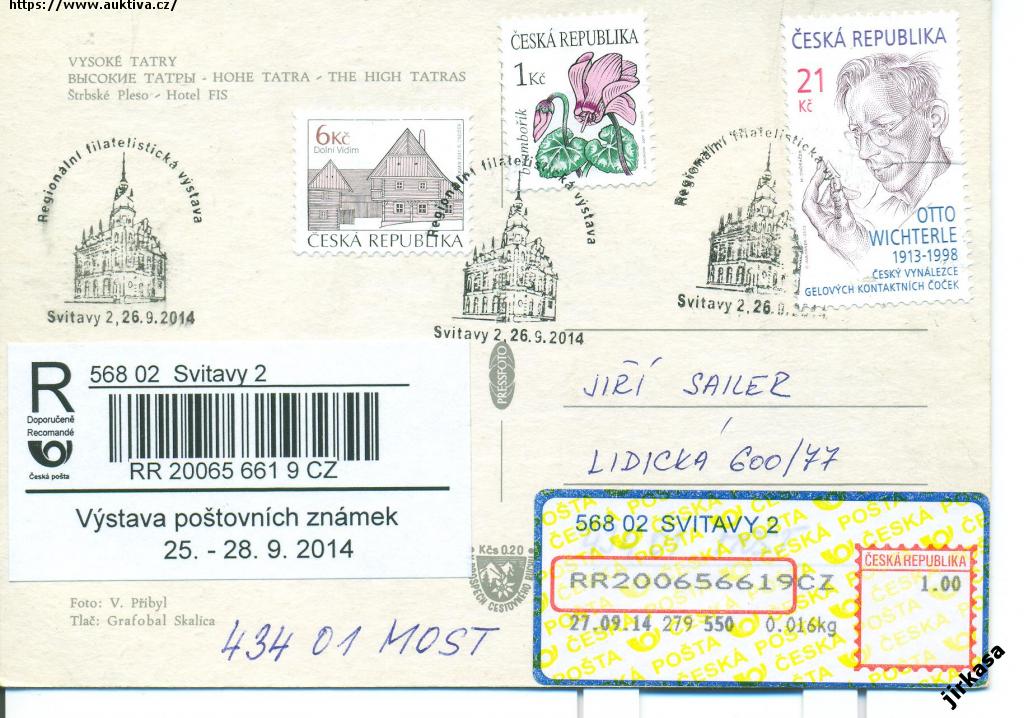 https://www.auktiva.cz/
VYSOKÉ TATRY
ВЫСОКИЕ ТАТРЫ - HOHE TATRA - THE HIGH TATRAS
Štrbské Pleso - Hotel FIS
6Kč
Dolní Vidim
ČESKÁ REPUBLIKA
ČESKÁ REPUBLIKA
1Kč
brambořík
ČESKÁ REPUBLIKA
21
Kč
OTTO
WICHTERLE
1913-1998
ČESKÝ VYNÁLEZCE
GELOVÝCH KONTAKTNÍCH ČOČEK
Regionální filatelistická výstava
Svitavy 2, 26.9.2014
Regionální filatelistická výstava
Svitavy 2, 26.9.2014
Regionální filatelistická výstava
Svitavy 2, 26.9.2014
R
Doporučeně
Recomandé
Česká pošta
568 02 Svitavy 2
RR 20065 661 9 CZ
Výstava poštovních známek
25. - 28. 9. 2014
PRESSFOTO
JIŘÍ SAILER
LIDICKÁ 600/77
Kčs 0.20
568 02 SVITAVY 2
RR200656619CZ
27.09.14 279 550 0.016kg
ČESKÁ REPUBLIKA
1.00
ČESKÁ POŠTA
Foto: V. Přibyl
Tlač: Grafobal Skalica
434 01 MOST
jirkasa